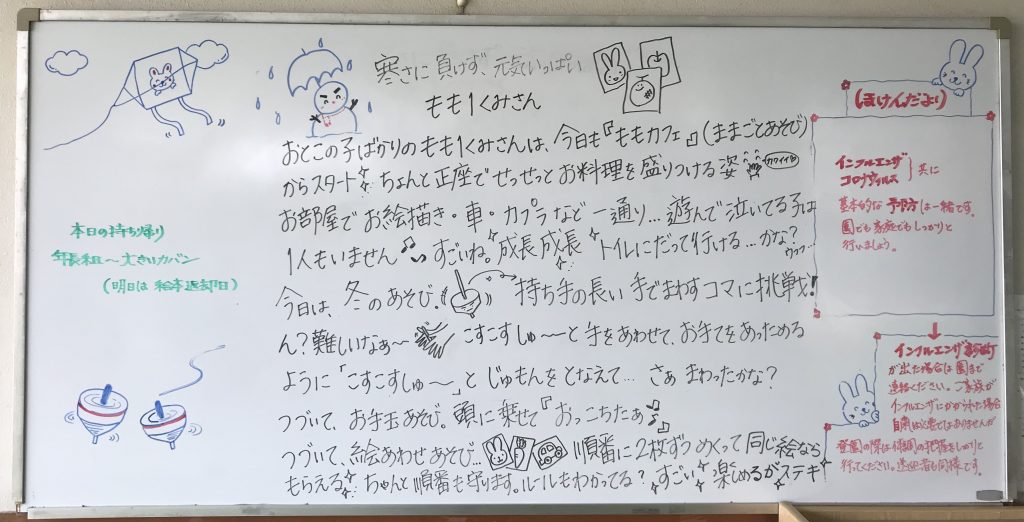 寒さに負けず、元気いっぱい
もも1くみさん
おとこの子ばかりのもも1くみさんは、今日も『ももカフェ』(ままごとあそび)
からスタート ちょんと正座でせっせっとお料理を盛りつける姿 カワイイ
お部屋でお絵描き・車・カプラなど一通り…遊んで泣いてる子は
1人もいません♫ すごいね。成長成長 トイレにだって行ける…かな?ウフッ
今日は、冬のあそび。 持ち手の長い手でまわすコマに挑戦!
ん?難しいなぁ〜 こすこすしゅ〜と手をあわせて、お手てをあっためる
ように「こすこすしゅ〜」とじゅもんをとなえて… さぁ まわったかな?
つづいて、お手玉あそび。頭に乗せて『おっこちたぁ♪』
つづいて、絵あわせあそび… 順番に2枚ずつめくって同じ絵なら
もらえる ちゃんと順番も守ります。ルールもわかってる? すごい 楽しめるがステキ
本日の持ち帰り
年長組〜大きいカバン
(明日は 絵本返却日)
ほけんだより
インフルエンザ
コロナウィルス
共に
基本的な予防は一緒です。
園でも家庭でもしっかりと
行いましょう。
インフルエンザ診断
が出た場合は園まで
連絡ください。ご家族が
インフルエンザにかかられた場合
自粛は必要ではありませんが
登園の際は体調の把握をしっかりと
行ってください。送迎者も同様です。